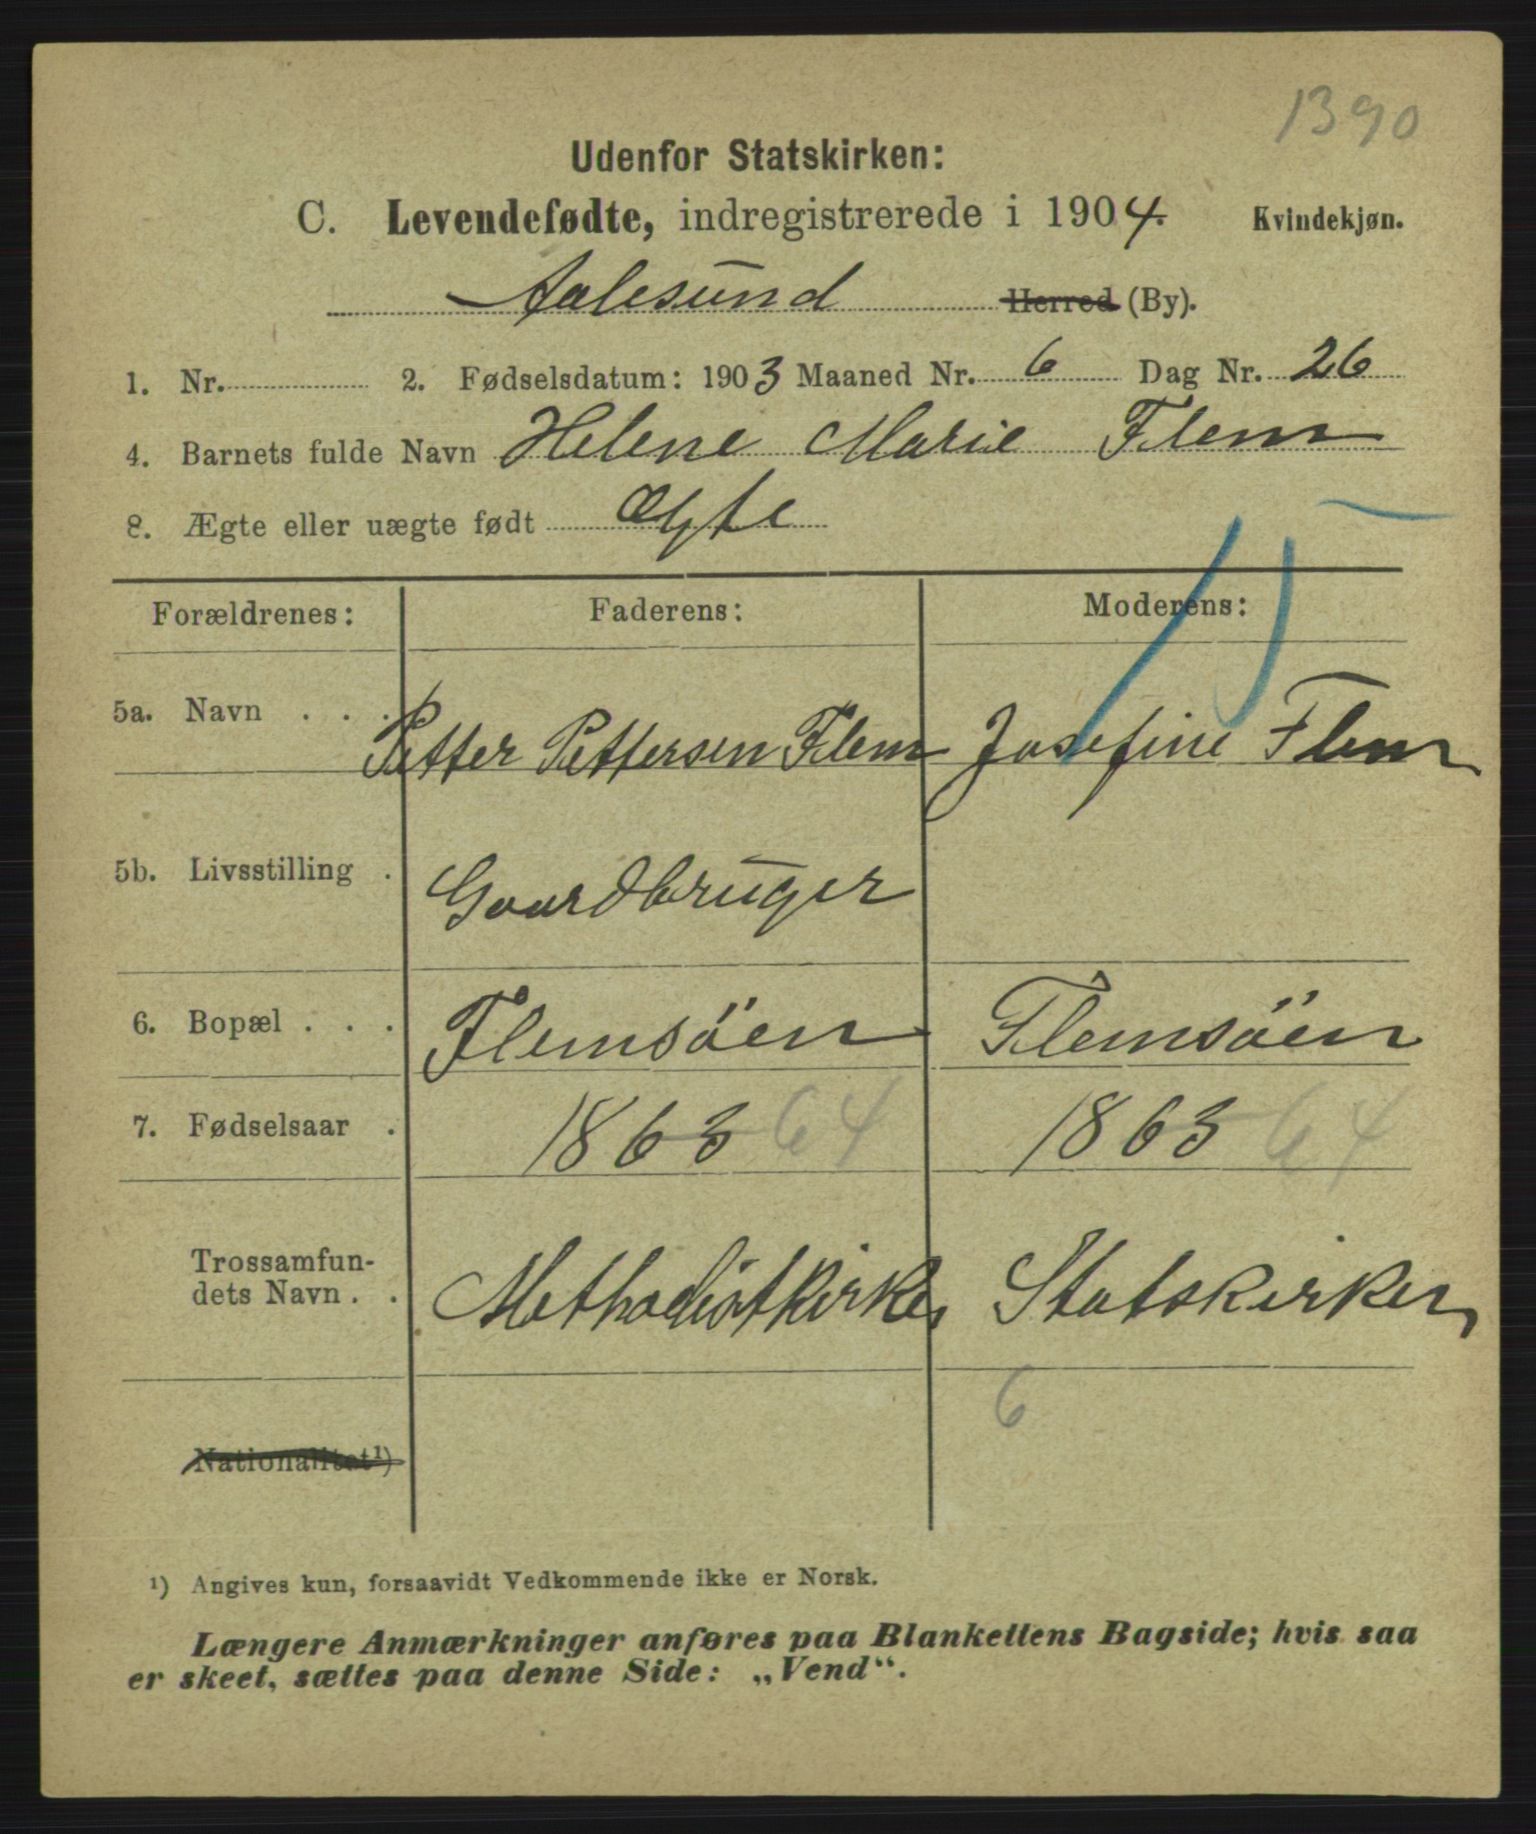 1390
Udenfor Statskirken:
C. Levendefødte, indregistrerede i 1904. Kvindekjøn.
Aalesund Herred (By).
1. Nr. 2. Fødselsdatum: 1903 Maaned Nr. 6 Dag Nr. 26
4. Barnets fulde Navn Helene Marie Flem
8. Ægte eller uægte født Ægte
Forældrenes: Faderens: Moderens:
5a. Navn . . . Petter Pettersen Flem Josefine Flem
5b. Livsstilling . Gaardbruger
6. Bopæl . . . Flemsöen Flemsöen
7. Fødselsaar . 1863 64 1863 64
Trossamfun-
dets Navn . . Methodistkirken Statskirken
6
Nationalitet¹)
¹) Angives kun, forsaavidt Vedkommende ikke er Norsk.
Længere Anmærkninger anføres paa Blankettens Bagside; hvis saa
er skeet, sættes paa denne Side: „Vend“.